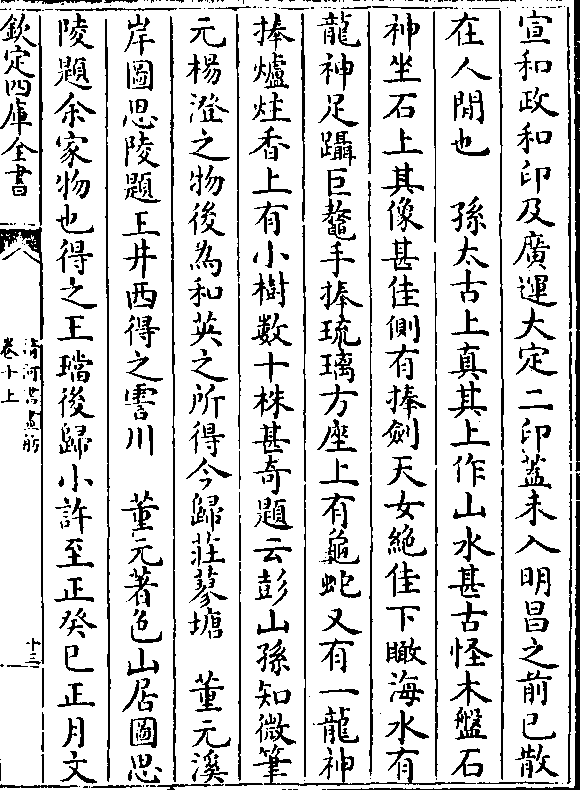 宣和政和印及廣運大定二印蓋未入明昌之前已散
在人間也　孫太古上真其上作山水甚古怪木盤石
神坐石上其像甚佳側有捧劍天女絶佳下瞰海水有
龍神足躡巨鼇手捧琉璃方座上有龜蛇又有一龍神
捧爐炷香上有小樹數十株甚奇題云彭山孫知微筆
元楊澄之物後為和英之所得今歸莊蓼塘　董元溪
岸圖思陵題王井西得之霅川　董元著色山居圖思
陵題余家物也得之王璫後歸小許至正癸巳正月文
欽定四庫全書
清河書畫舫
卷十上
十三